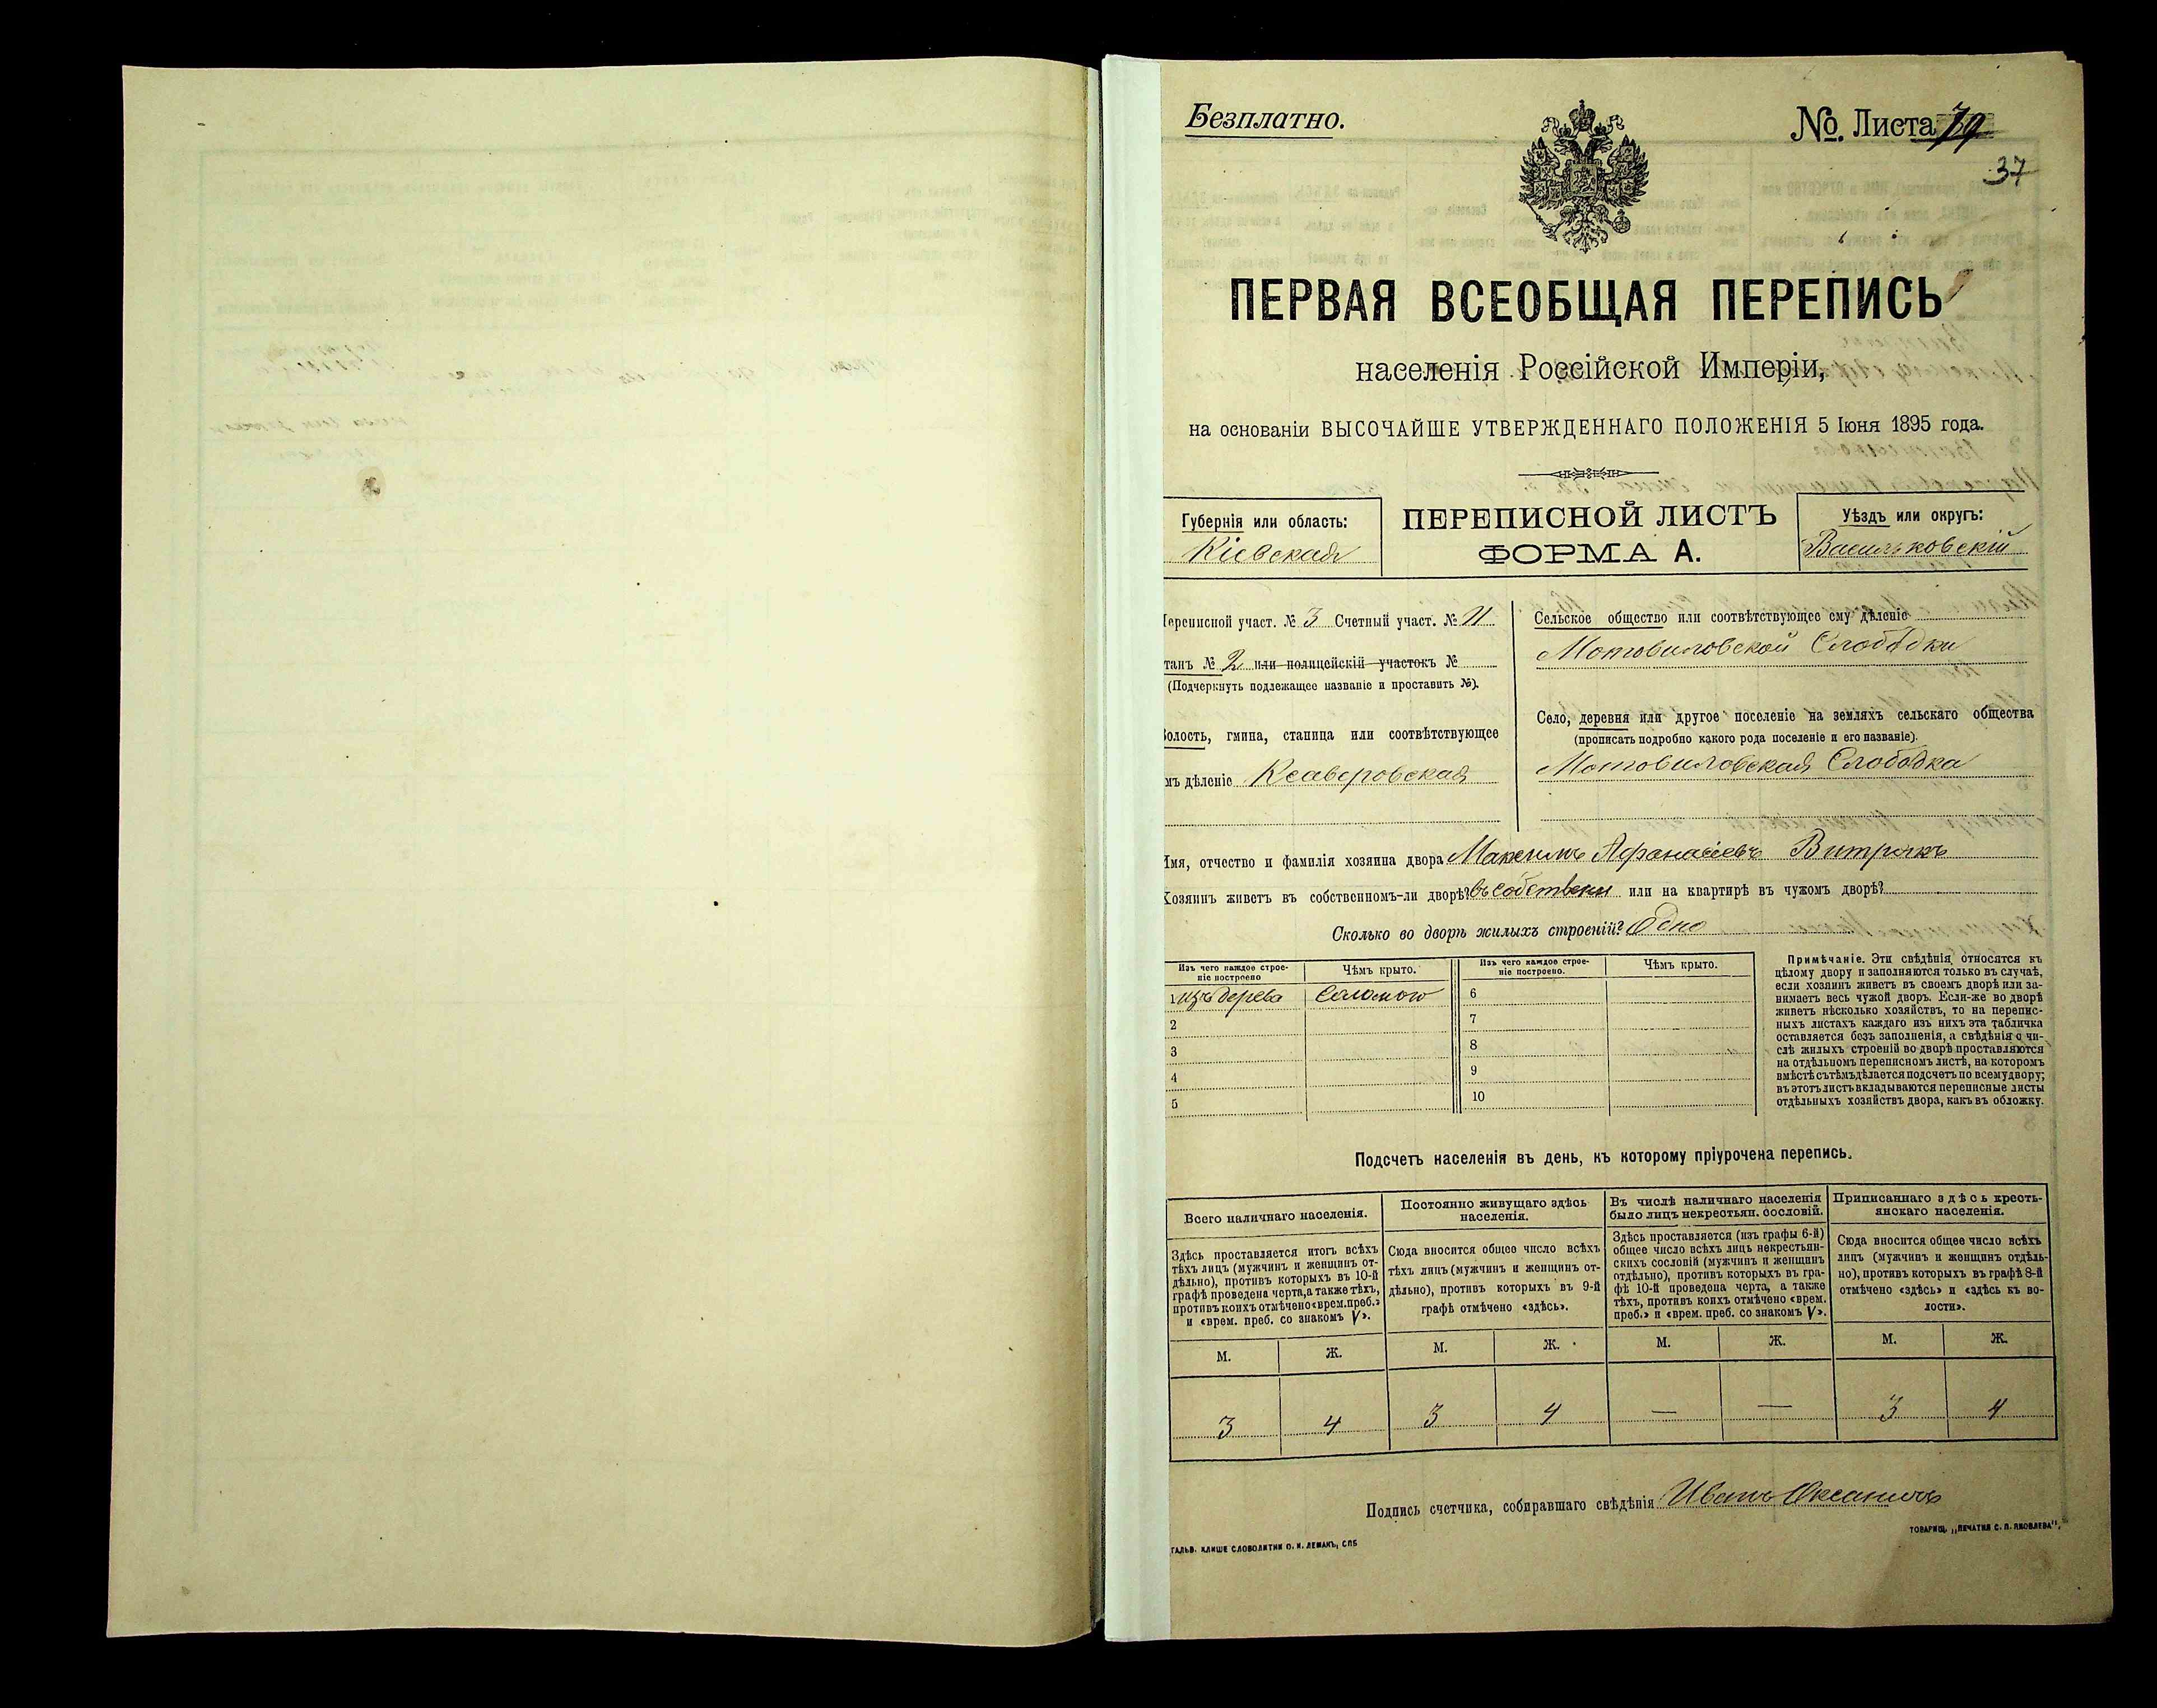 Безплатно.
№ Листа 79
37
ПЕРВАЯ ВСЕОБЩАЯ ПЕРЕПИСЬ
населенія Россійской Имперіи,
на основаніи ВЫСОЧАЙШЕ УТВЕРЖДЕННАГО ПОЛОЖЕНІЯ 5 Іюня 1895 года.
Губернія или область:
Кіевская
ПЕРЕПИСНОЙ ЛИСТЪ
ФОРМА А.
Уѣздъ или округъ:
Васильковскій
ереписной участ. № 3 Счетный участ. № 11
танъ № 2 или полицейскій участокъ №
(Подчеркнуть подлежащее названіе и проставить №).
олость, гмина, станица или соотвѣтствующее
мъ дѣленіе Ксаверовская
Сельское общество или соотвѣтствующее ему дѣленіе
Мотовиловской Слободки
Село, деревня или другое поселеніе на земляхъ сельскаго общества
(прописать подробно какого рода поселеніе и его названіе).
Мотовиловская Слободка
Имя, отчество и фамилія хозяина двора Максимъ Афанасіевъ Витрукъ
Хозяинъ живетъ въ собственномъ-ли дворѣ? въ собствени или на квартирѣ въ чужомъ дворѣ?
Сколько во дворѣ жилыхъ строеній? Одно
Изъ чего каждое строе-
ніе построено
Чѣмъ крыто.
Изъ чего каждое строе-
ніе построено.
Чѣмъ крыто.
1 изъ дерева Соломою 6
2 7
3 8
4 9
5 10
Примѣчаніе. Эти свѣдѣнія относятся къ
цѣлому двору и заполняются только въ случаѣ,
если хозяинъ живетъ въ своемъ дворѣ или за-
нимаетъ весь чужой дворъ. Если-же во дворѣ
живетъ нѣсколько хозяйствъ, то на перепис-
ныхъ листахъ каждаго изъ нихъ эта табличка
оставляется безъ заполненія, а свѣдѣнія о чи-
слѣ жилыхъ строеній во дворѣ проставляются
на отдѣльномъ переписномъ листѣ, на которомъ
вмѣстѣ съ тѣмъ дѣлается подсчетъ по всему двору;
въ этотъ листъ вкладываются переписные листы
отдѣльныхъ хозяйствъ двора, какъ въ обложку.
Подсчетъ населенія въ день, къ которому пріурочена перепись.
Всего наличнаго населенія.
Здѣсь проставляется итогъ всѣхъ
тѣхъ лицъ (мужчинъ и женщинъ от-
дѣльно), противъ которыхъ въ 10-й
графѣ проведена черта, а также тѣхъ,
противъ коихъ отмѣчено «врем. преб.»
и «врем. преб. со знакомъ V».
Постоянно живущаго здѣсь
населенія.
Сюда вносится общее число всѣхъ
тѣхъ лицъ (мужчинъ и женщинъ от-
дѣльно), противъ которыхъ въ 9-й
графѣ отмѣчено «здѣсь».
Въ числѣ наличнаго населенія
было лицъ некрестьян. сословій.
Здѣсь проставляется (изъ графы 6-й)
общее число всѣхъ лицъ некрестьян-
скихъ сословій (мужчинъ и женщинъ
отдѣльно), противъ которыхъ въ гра-
фѣ 10-й проведена черта, а также
тѣхъ, противъ коихъ отмѣчено «врем.
преб.» и «врем. преб. со знакомъ V».
Приписаннаго здѣсь кресть-
янскаго населенія.
Сюда вносится общее число всѣхъ
лицъ (мужчинъ и женщинъ отдѣль-
но), противъ которыхъ въ графѣ 8-й
отмѣчено «здѣсь» и «здѣсь къ во-
лости».
М. Ж. М. Ж. М. Ж. М. Ж.
3 4 3 4 — — 3 4
Подпись счетчика, собиравшаго свѣдѣнія Иванъ
ГАЛЬВ. КЛИШЕ СЛОВОЛИТНИ О. И. ЛЕМАНЪ, СПБ
ТОВАРИЩ. „ПЕЧАТНЯ С. П. ЯКОВЛЕВА".